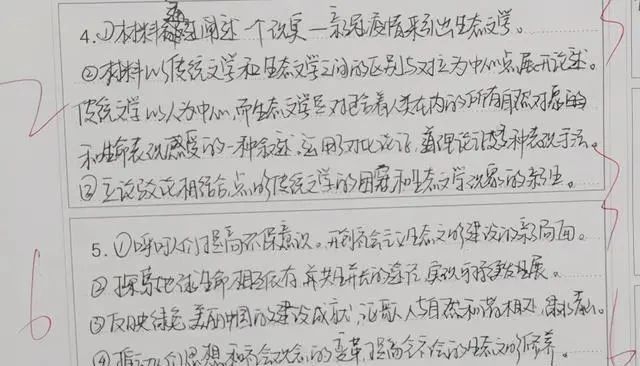 4.①材料一阐述一个说更一新冠疫情来引出生态文学。
②材料以传统文学和生态文学之间的区别与对立为中心点展开论述。
传统文学以人为中心,而生态文学是对包含着人类在内的所有自然对象的
和生命表现感受的一种叙述,运用了对比论证,道理论证等多种表现手法。
③立论驳论相结合点的传统文学的困窘和生态文学现象的新生。
5.①呼吁人们提高环保意识。开创社会主义生态文明建设的新局面。
②探索地球生命相互依存,并共同前去的途径,实现可持续发展。
③反映绿色美丽中国的建设成就,讴歌人与自然和谐相处,
④推动人们思想和社会观念的变革,提高全社会的生态文明修养。
2
6